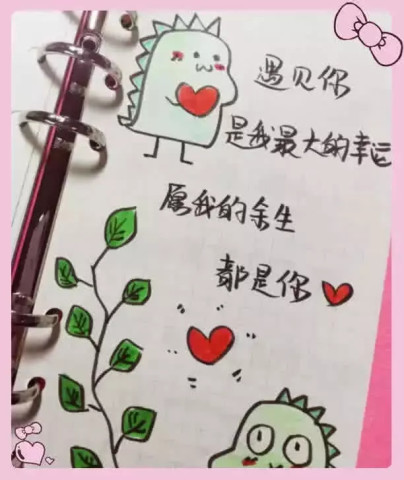 遇见你
是我最大的幸运
属我的余生
都是你